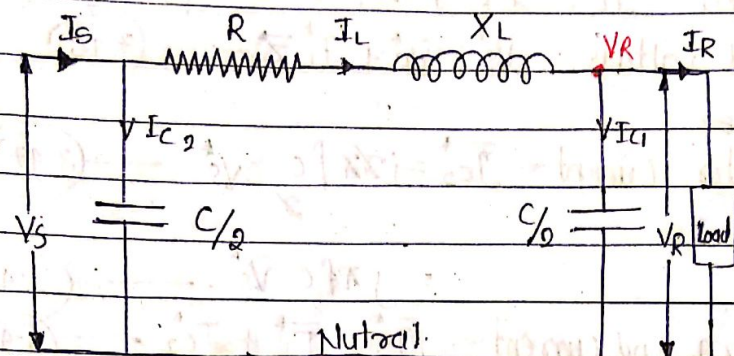 IS R IL XL VR IR
IC2 IC1
VS C/2 C/2 VR Load
Nutral.